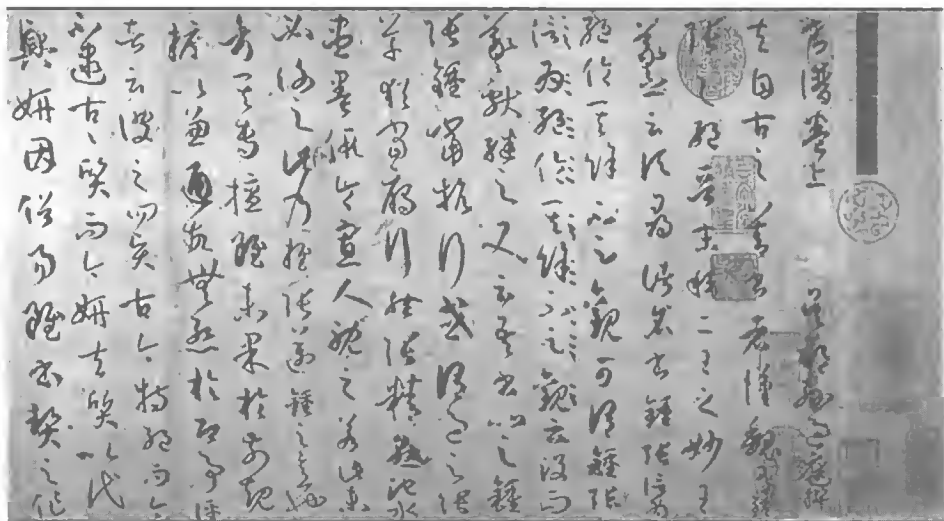 書譜卷上 吳郡孫過庭撰
夫自古之善書者漢魏有鍾
張之絕晉末稱二王之妙王
羲之云頃尋諸名書鍾張信為
絕倫其餘不足觀可謂鍾張
信為絕倫其餘不足觀云沒而
羲獻繼之又云吾書比之鍾
張鍾當抗行或謂過之張
草猶當鴈行然張精熟池水
盡墨假令寡人耽之若此未
必謝之此乃推張邁鍾之意也
考其專擅雖未果於前規
摭以兼通故無慚於即事評
者云彼之四賢古今特絕而今
不逮古〻質而今妍夫質以代
興妍因俗易雖書契之作